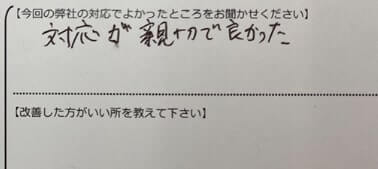 【今回の弊社の対応でよかったところをお聞かせください】
対応が親切で良かった
【改善した方がいい所を教えて下さい】